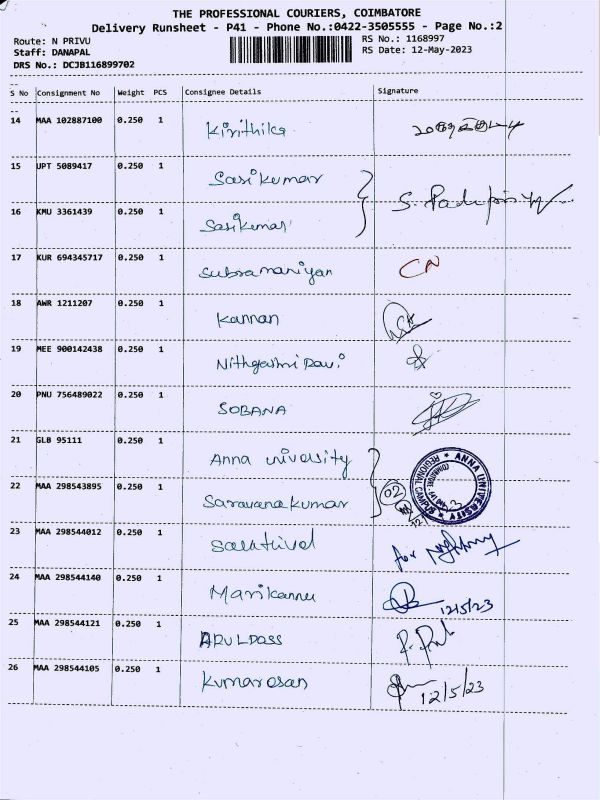 THE PROFESSIONAL COURIERS, COIMBATORE
Delivery Runsheet - P41 - Phone No.:0422-3505555 - Page No.:2
Route: N PRIVU
Staff: DANAPAL
DRS No.: DCJB116899702
RS No.: 1168997
RS Date: 12-May-2023
S No Consignment No Weight PCS Consignee Details Signature
14 MAA 102887100 0.250 1 Kirithika
15 UPT 5089417 0.250 1 Sasikumar
16 KMU 3361439 0.250 1 Sasikumar
17 KUR 694345717 0.250 1 Subramaniyan CN
18 AWR 1211207 0.250 1 Kannan
19 MEE 900142438 0.250 1
20 PNU 756489022 0.250 1 SOBANA
21 GLB 95111 0.250 1 Anna university
22 MAA 298543895 0.250 1 Saravanakumar 02
ANNA UNIVERSITY REGIONAL CAMPUS
23 MAA 298544012 0.250 1 Sakthivel for
24 MAA 298544140 0.250 1 Marikannu 12/5/23
25 MAA 298544121 0.250 1 ARULDOSS
26 MAA 298544105 0.250 1 Kumaresan 12/5/23